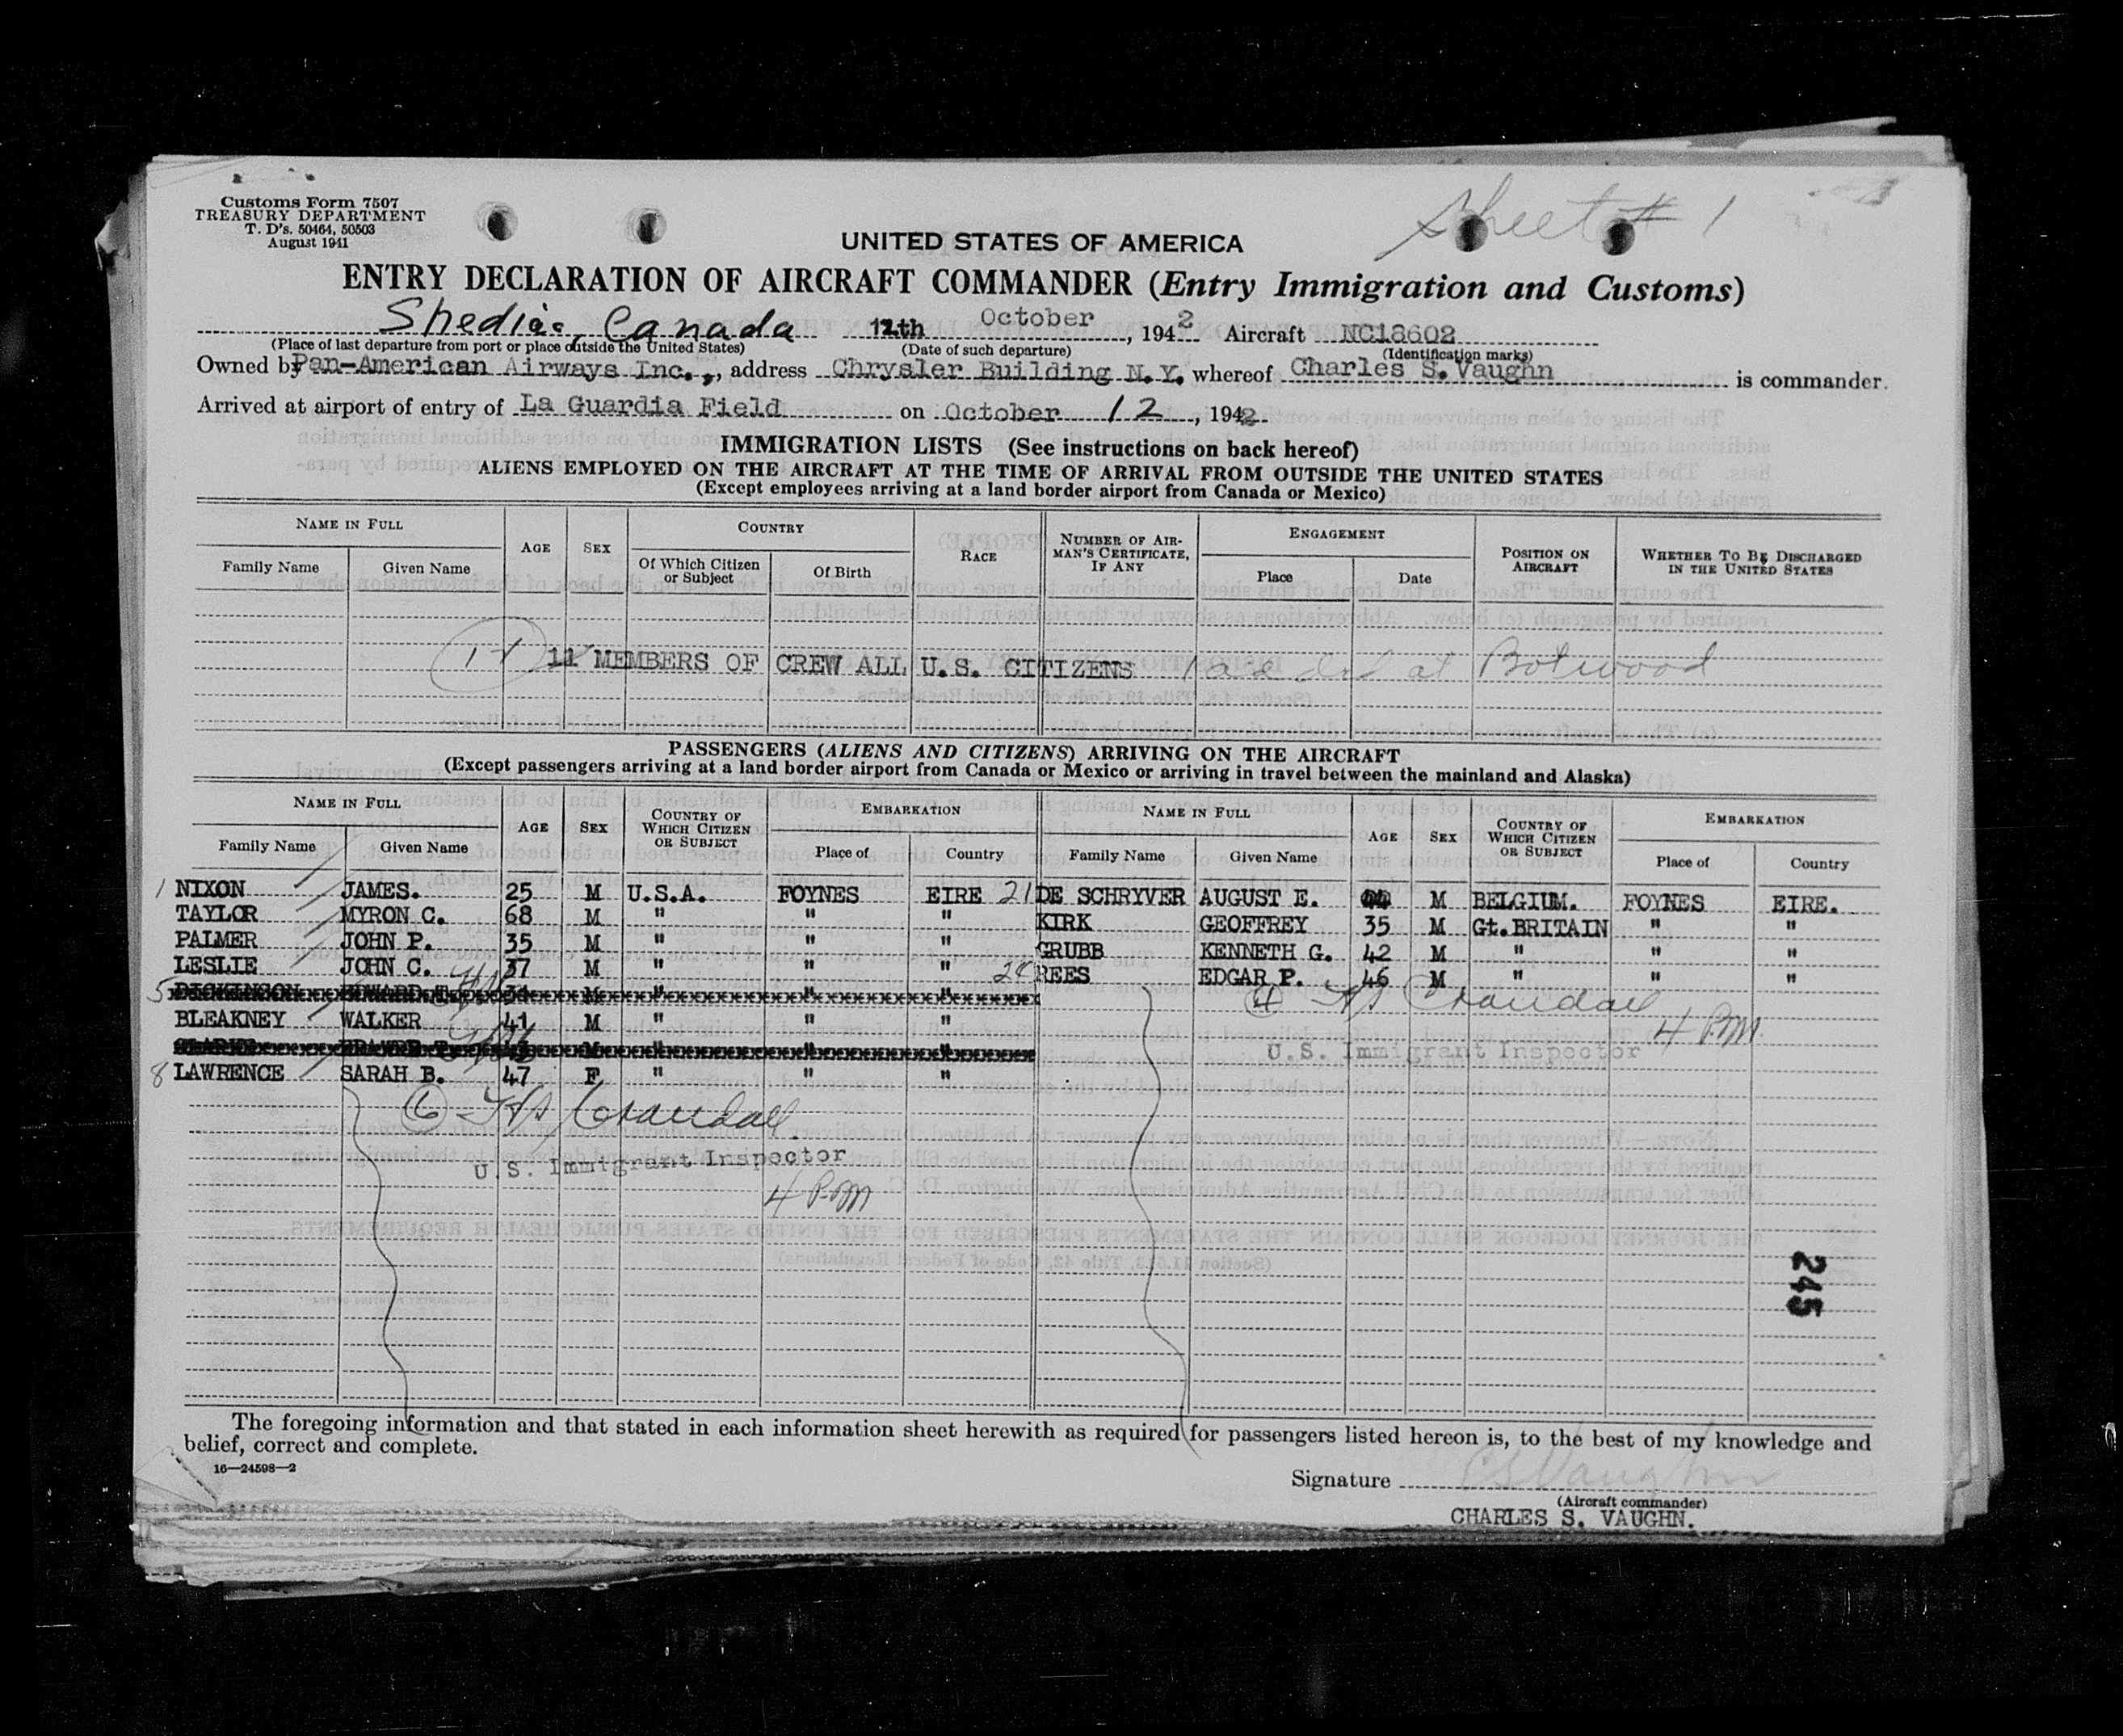 Customs Form 7507
TREASURY DEPARTMENT
T. D's. 50464, 50503
August 1941
Sheet # 1
UNITED STATES OF AMERICA
ENTRY DECLARATION OF AIRCRAFT COMMANDER (Entry Immigration and Customs)
Shediac, Canada 12th October, 1942 Aircraft NC18602
(Place of last departure from port or place outside the United States) (Date of such departure) (Identification marks)
Owned by Pan-American Airways Inc., address Chrysler Building N.Y. whereof Charles S. Vaughn is commander.
Arrived at airport of entry of La Guardia Field on October 12, 1942
IMMIGRATION LISTS (See instructions on back hereof)
ALIENS EMPLOYED ON THE AIRCRAFT AT THE TIME OF ARRIVAL FROM OUTSIDE THE UNITED STATES
(Except employees arriving at a land border airport from Canada or Mexico)
NAME IN FULL AGE SEX COUNTRY RACE NUMBER OF AIRMAN'S CERTIFICATE, IF ANY ENGAGEMENT POSITION ON AIRCRAFT WHETHER TO BE DISCHARGED IN THE UNITED STATES
Family Name Given Name Of Which Citizen or Subject Of Birth Place Date
11 11 MEMBERS OF CREW ALL U.S. CITIZENS at Botwood
PASSENGERS (ALIENS AND CITIZENS) ARRIVING ON THE AIRCRAFT
(Except passengers arriving at a land border airport from Canada or Mexico or arriving in travel between the mainland and Alaska)
NAME IN FULL AGE SEX COUNTRY OF WHICH CITIZEN OR SUBJECT EMBARKATION NAME IN FULL AGE SEX COUNTRY OF WHICH CITIZEN OR SUBJECT EMBARKATION
Family Name Given Name Place of Country Family Name Given Name Place of Country
1 NIXON JAMES. 25 M U.S.A. FOYNES EIRE 21 DE SCHRYVER AUGUST E. M BELGIUM. FOYNES EIRE.
TAYLOR MYRON C. 68 M " " " KIRK GEOFFREY 35 M Gt.BRITAIN " "
PALMER JOHN P. 35 M " " " GRUBB KENNETH G. 42 M " " "
LESLIE JOHN C. 37 M " " " 24 REES EDGAR P. 46 M " " "
5 DICKINSON EDWARD T. 31 M " " "
4 Crandall
4 PM
BLEAKNEY WALKER 41 M " " "
M " " "
U.S. Immigrant Inspector
8 LAWRENCE SARAH B. 47 F " " "
6 Crandall
U.S. Immigrant Inspector
4 PM
245
The foregoing information and that stated in each information sheet herewith as required for passengers listed hereon is, to the best of my knowledge and
belief, correct and complete.
16—24598—2
Signature C S Vaughn
(Aircraft commander)
CHARLES S. VAUGHN.